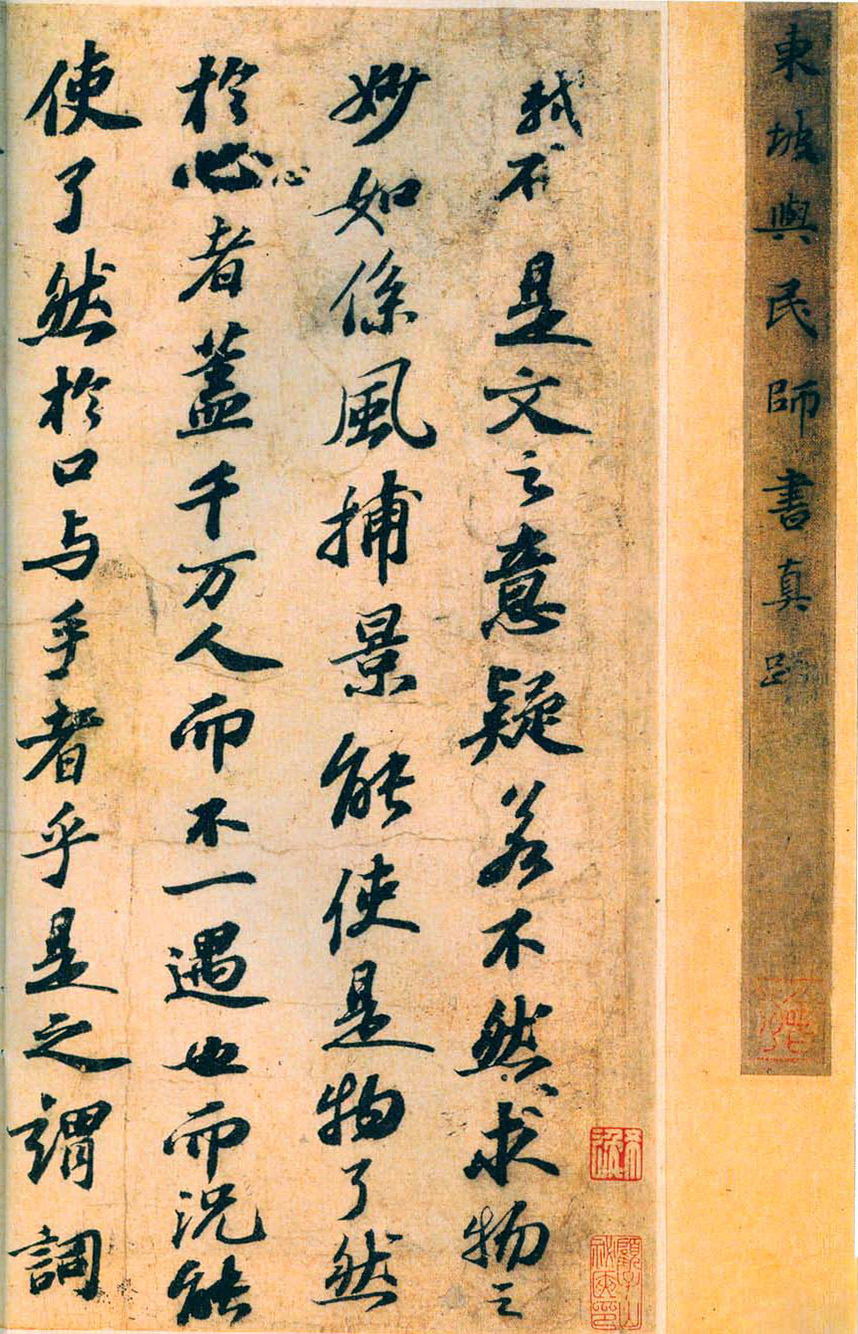 東坡與民師書真跡
軾不是文之意疑若不然求物之
妙如係風捕景能使是物了然
於心心者蓋千万人而不一遇也而況能
使了然於口与手者乎是之謂詞
顧子山秘篋印